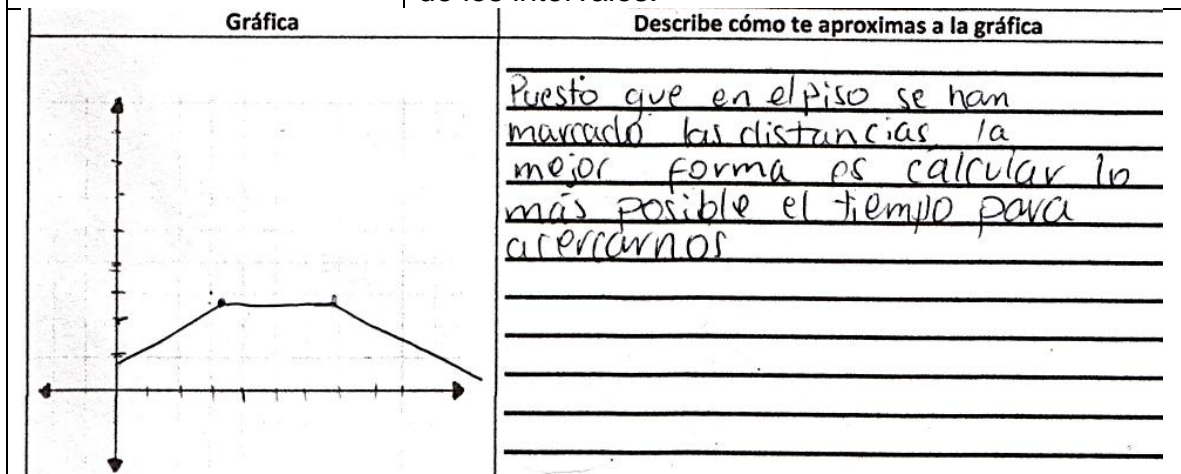 de los intervalos.
Gráfica
Describe cómo te aproximas a la gráfica
Puesto que en el piso se han
marcado las distancias la
mejor forma es cálcular lo
más posible el tiempo para
acercarnos